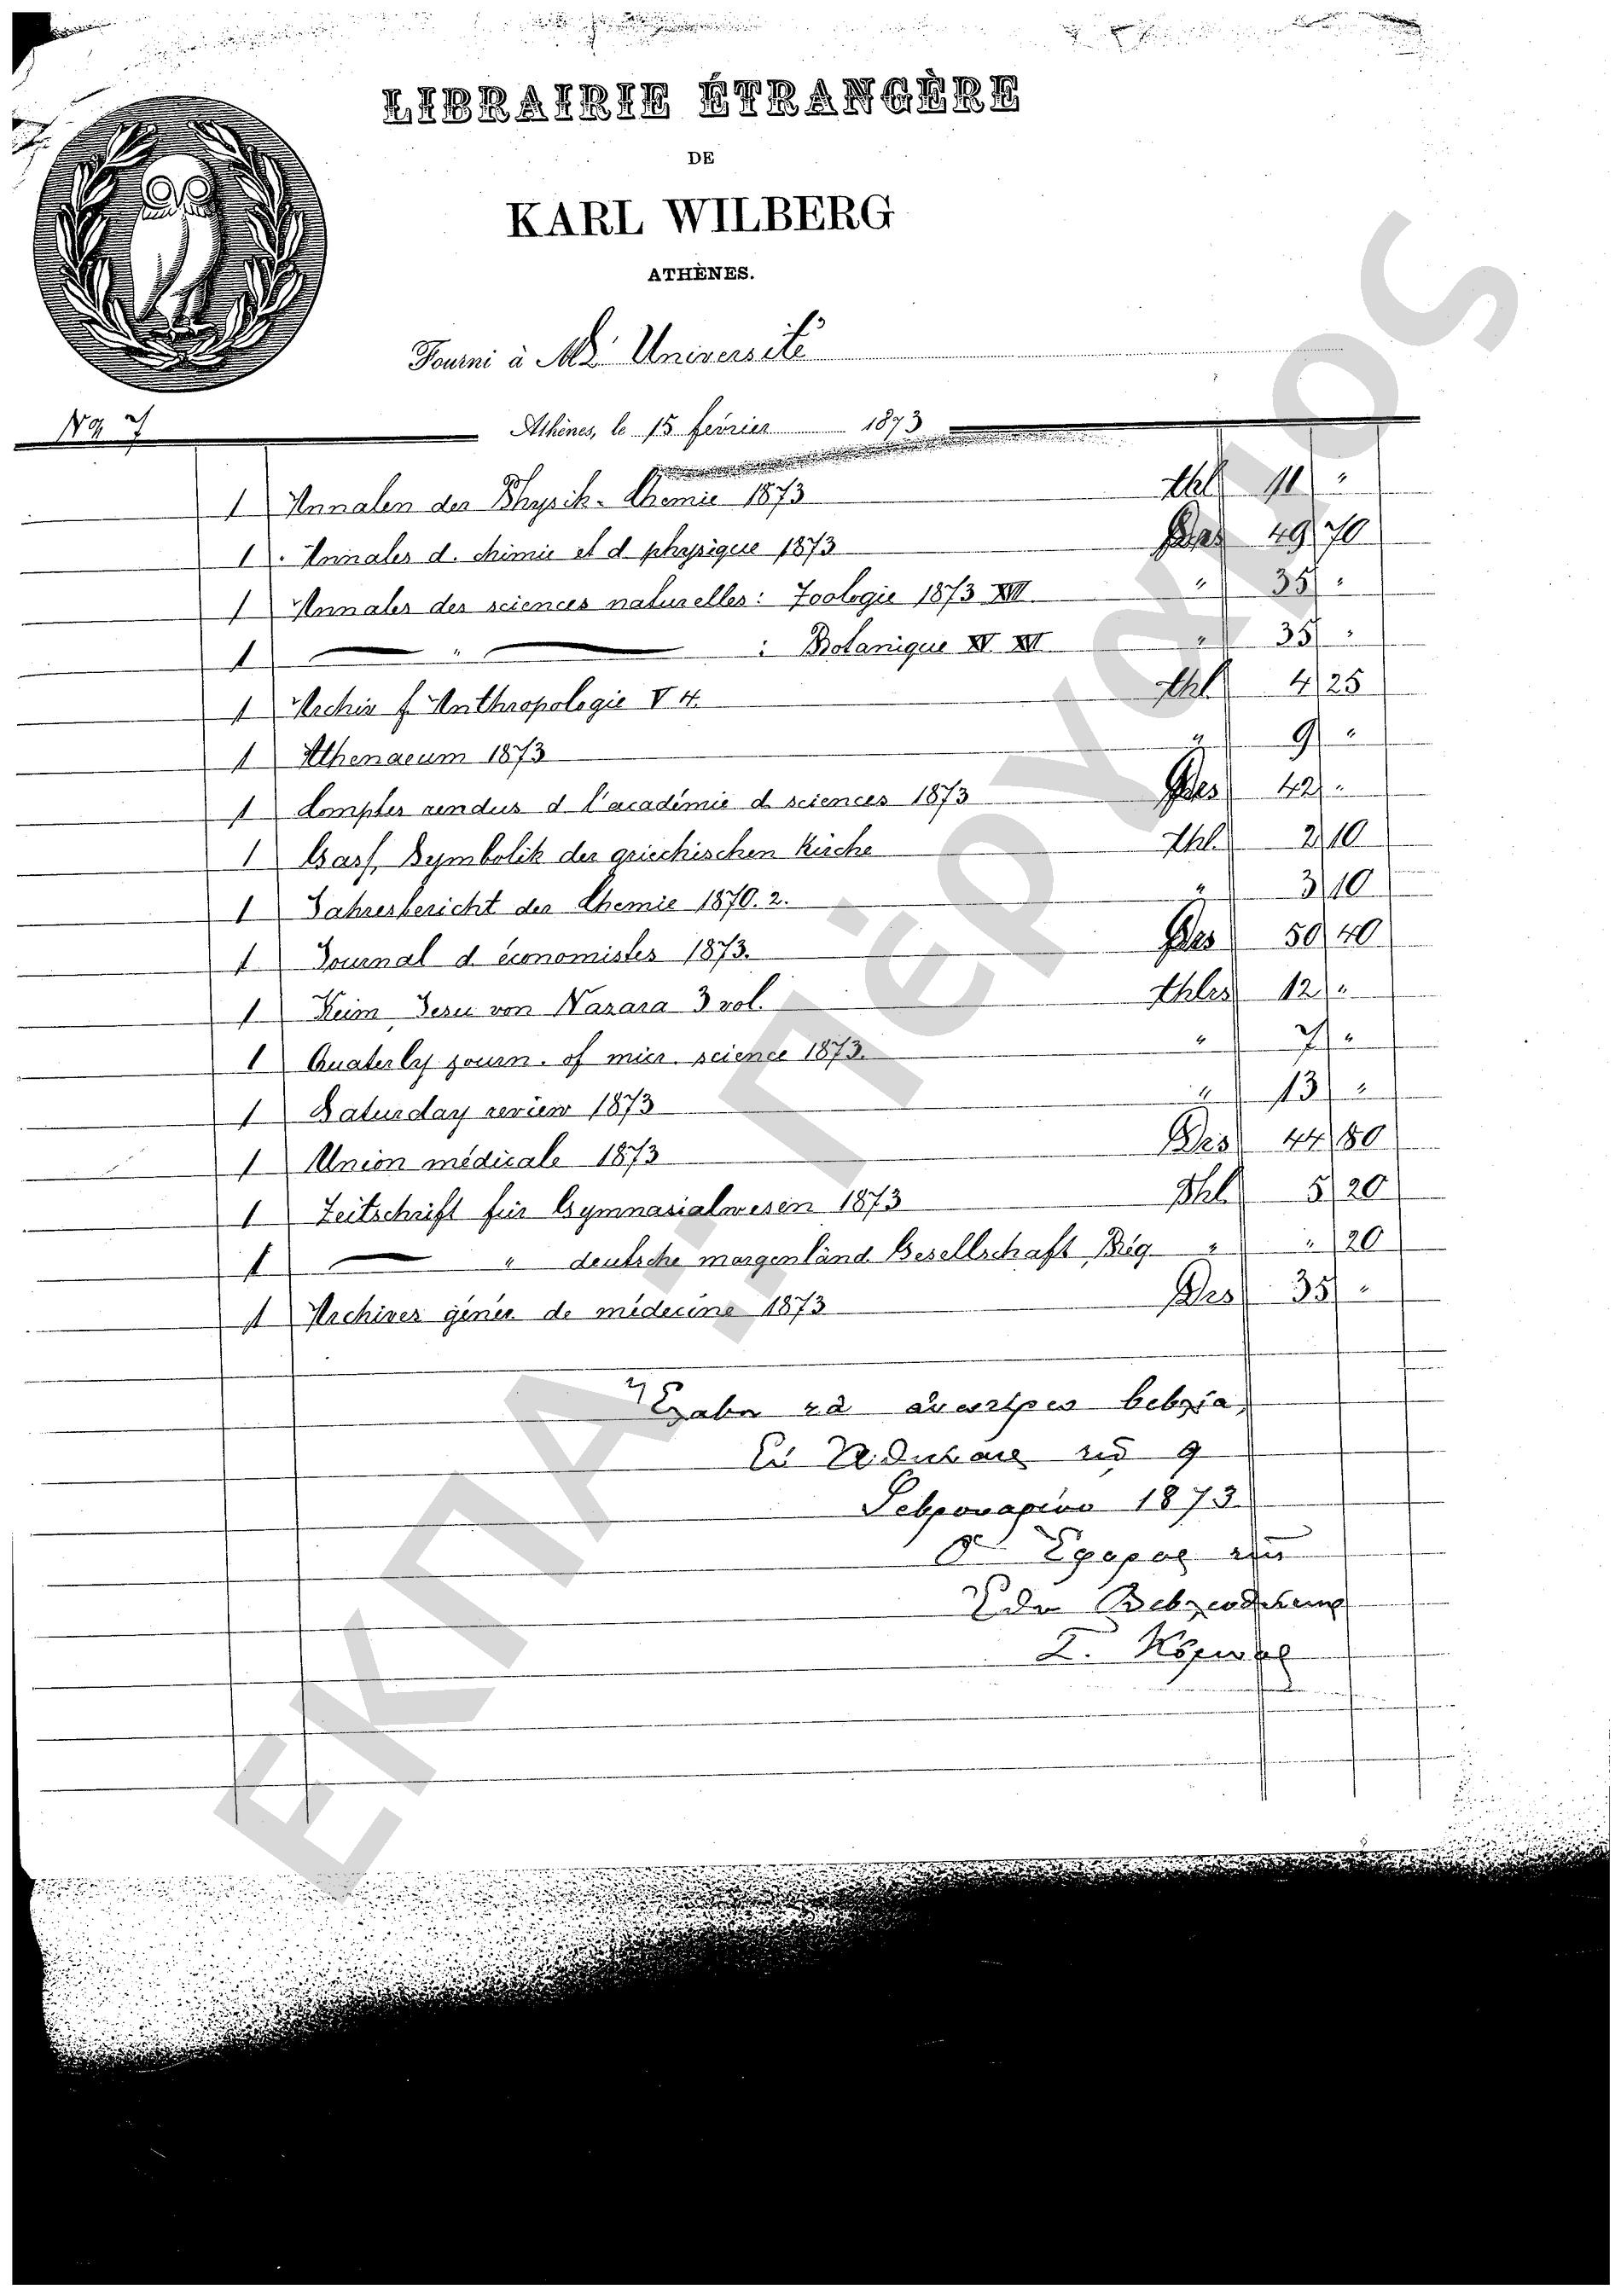 LIBRAIRIE ÉTRANGÈRE
DE
KARL WILBERG
ATHÈNES.
Fourni à Université
No 7 Athènes, le 15 février 1873
1 Annalen der Physik. Chemie 1873 thl 11 "
1 Annales d. chimie et d physique 1873 Drs 49 70
1 Annales des sciences naturelles: Zoologie 1873 XVII " 35 "
1 — " — : Botanique XV XVI " 35 "
1 Archiv f. Anthropologie V 4. thl 4 25
1 Athenaeum 1873 " 9 "
1 Comptes rendus d l'académie d sciences 1873 Drs 42 "
1 Gass, Symbolik der griechischen Kirche thl. 2 10
1 Jahresbericht der Chemie 1870. 2. " 3 10
1 Journal d. économistes 1873. Drs 50 40
1 Keim, Jesu von Nazara 3 vol. thlrs 12 "
1 Quaterly journ. of micr. science 1873. " 7 "
1 Saturday review 1873 " 13 "
1 Union médicale 1873 Drs 44 80
1 Zeitschrift für Gymnasialwesen 1873 Thl. 5 20
1 — " deutsche morgenländ. Gesellschaft, Reg " " 20
1 Archives génér. de médecine 1873 Drs 35 "
Ἔλαβον τὰ ἀνωτέρω βιβλία,
Ἐν Ἀθήναις τῇ 9
Φεβρουαρίου 1873
Ὁ Ἔφορος τῆς
Ἐθν Βιβλιοθήκης
ΕΚΠΑ - Πέργαμος